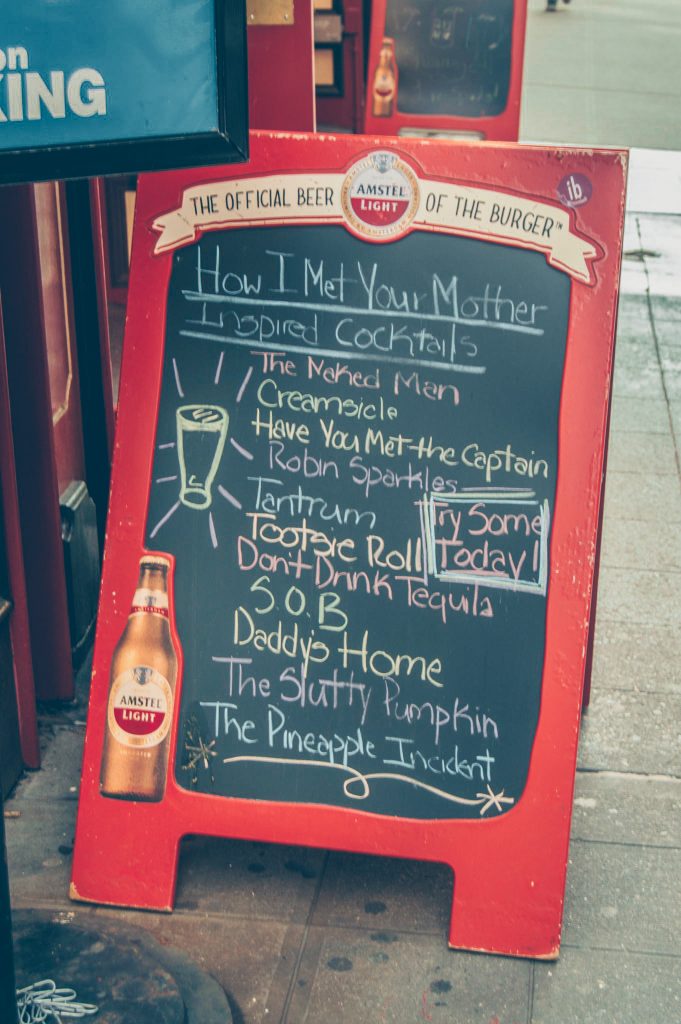 on
KING
THE OFFICIAL BEER AMSTEL LIGHT OF THE BURGER™
ib
How I Met Your Mother
Inspired Cocktails
The Naked Man
Creamsicle
Have You Met the Captain
Robin Sparkles
Tantrum
Try Some
Tootsie Roll
Today!
Don't Drink Tequila
S.O.B
Daddy's Home
The Slutty Pumpkin
The Pineapple Incident
AMSTEL
LIGHT